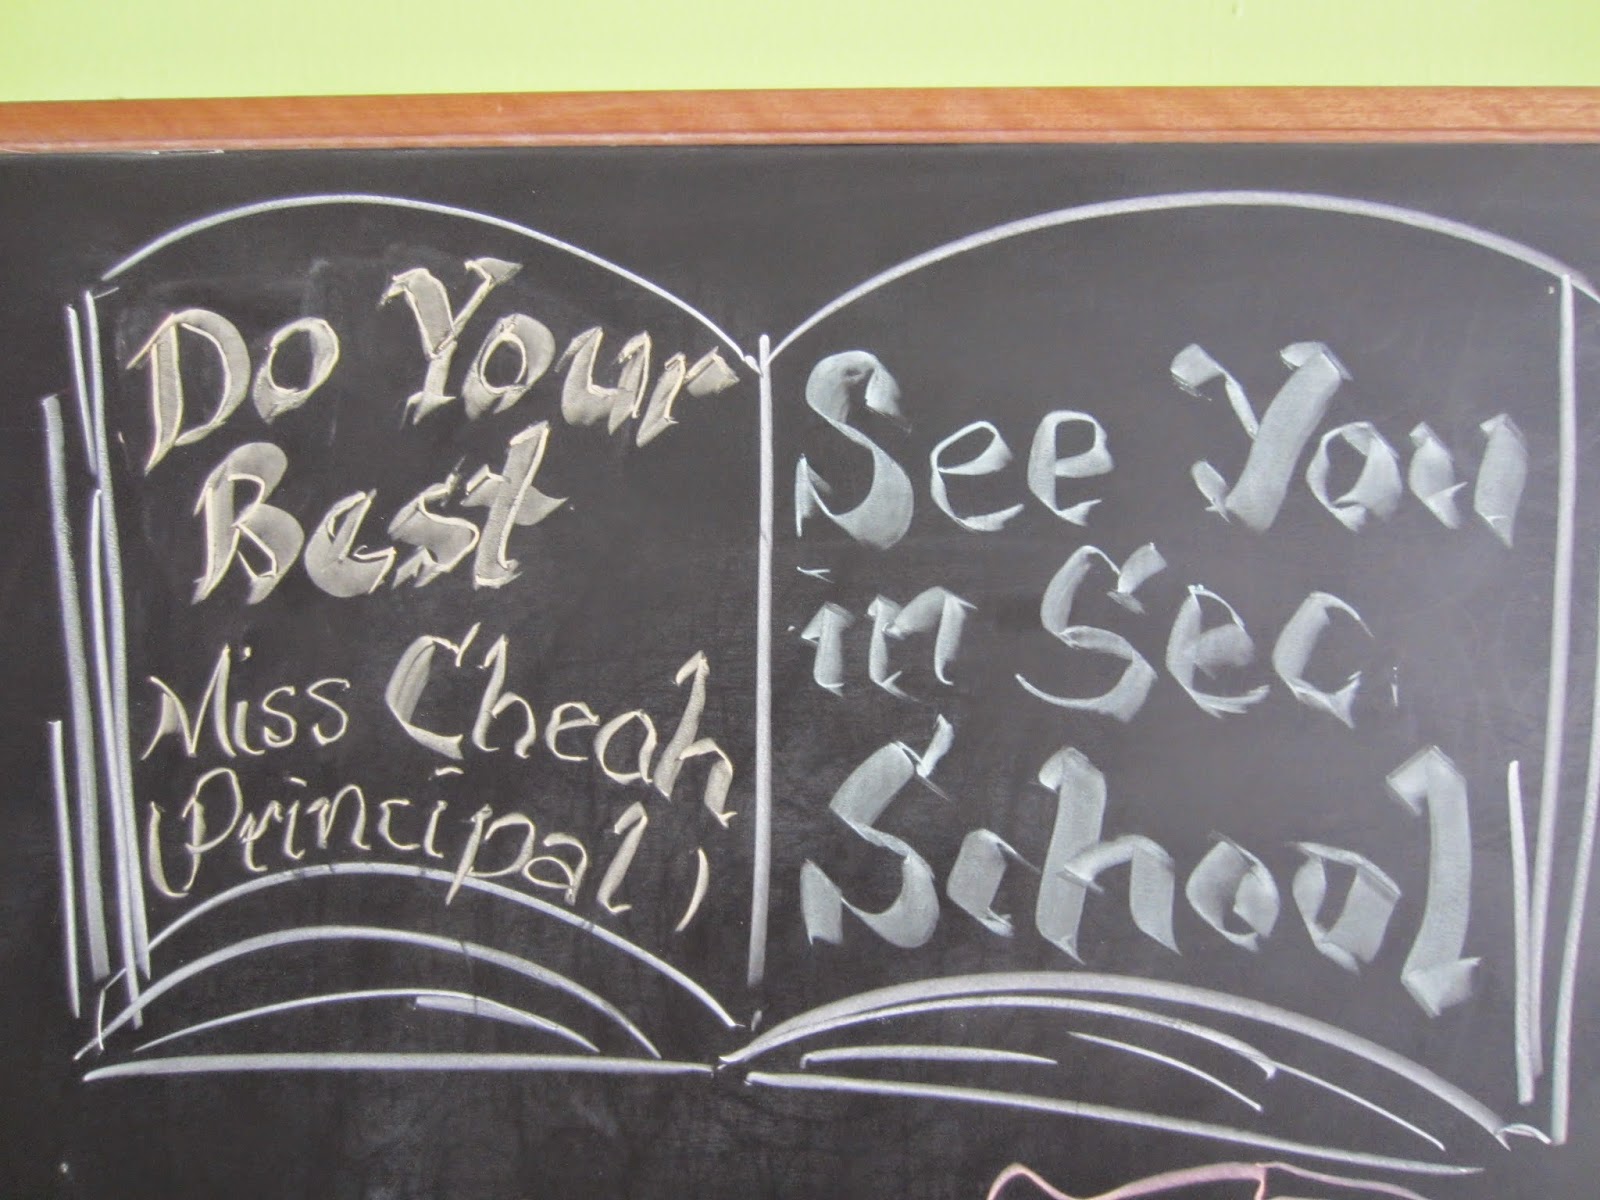 Do Your
Best
Miss Cheah
(Principal)
See You
in Sec.
School